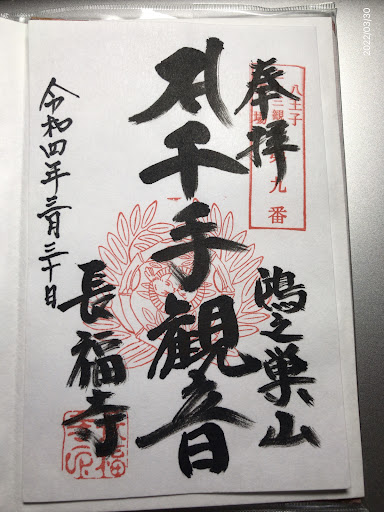 奉拝
八王子
三十三観音霊場
第九番
鴻之巣山
千手観音
長福寺
令和四年三月三十日
2022/03/30